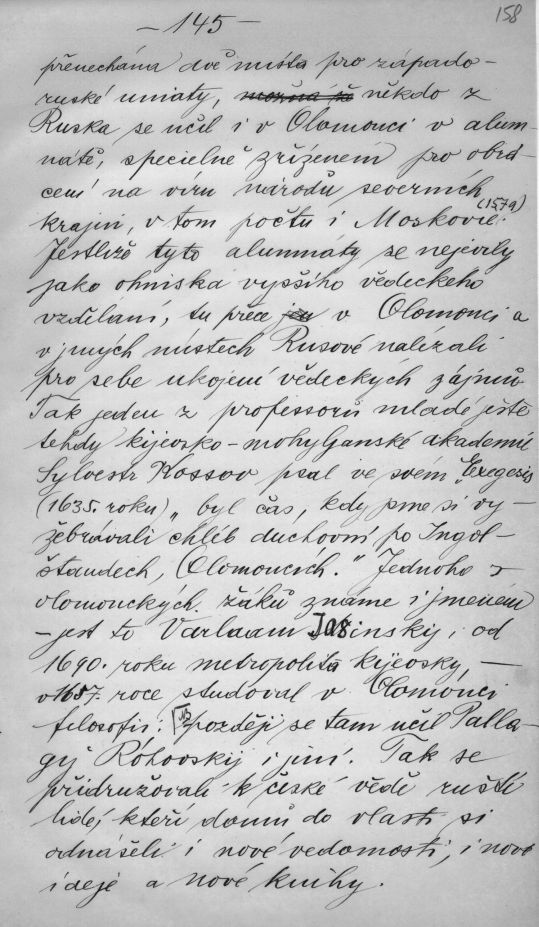 158
— 145 —
přenechána dvě místa pro západo-
ruské uniaty, možná že někdo z
Ruska se učil i v Olomouci v alum-
nátě, specielně zřízeném pro obrá-
cení na víru národů severních
krajin, v tom počtu i Moskovie. (1579)
Jestliže tyto alumnáty se nejevily
jako ohniska vyššího vědeckého
vzdělání, tu přece v Olomouci a
v jiných místech Rusové nalézali
pro sebe ukojení vědeckých zájmů.
Tak jeden z professorů mladé ještě
tehdy kijevsko-mohylanské akademie
Sylvestr Kossov psal ve svém „Exegesis
(1635. roku) „byl čas, kdy jsme si vy-
žebrávali chléb duchovní po Ingol-
štaudech, Olomoucích." Jednoho z
olomouckých žáků známe i jménem
- jest to Varlaam Jasinskij, od
1690. roku metropolita kijevský, —
v 1657. roce studoval v Olomouci
filosofii. později se tam učil Palla-
gij Róhovskij i jiní. Tak se
přidružovali k české vědě ruští
lidé, kteří domů do vlasti si
odnášeli i nové vedomosti, i nové
ideje a nové knihy.